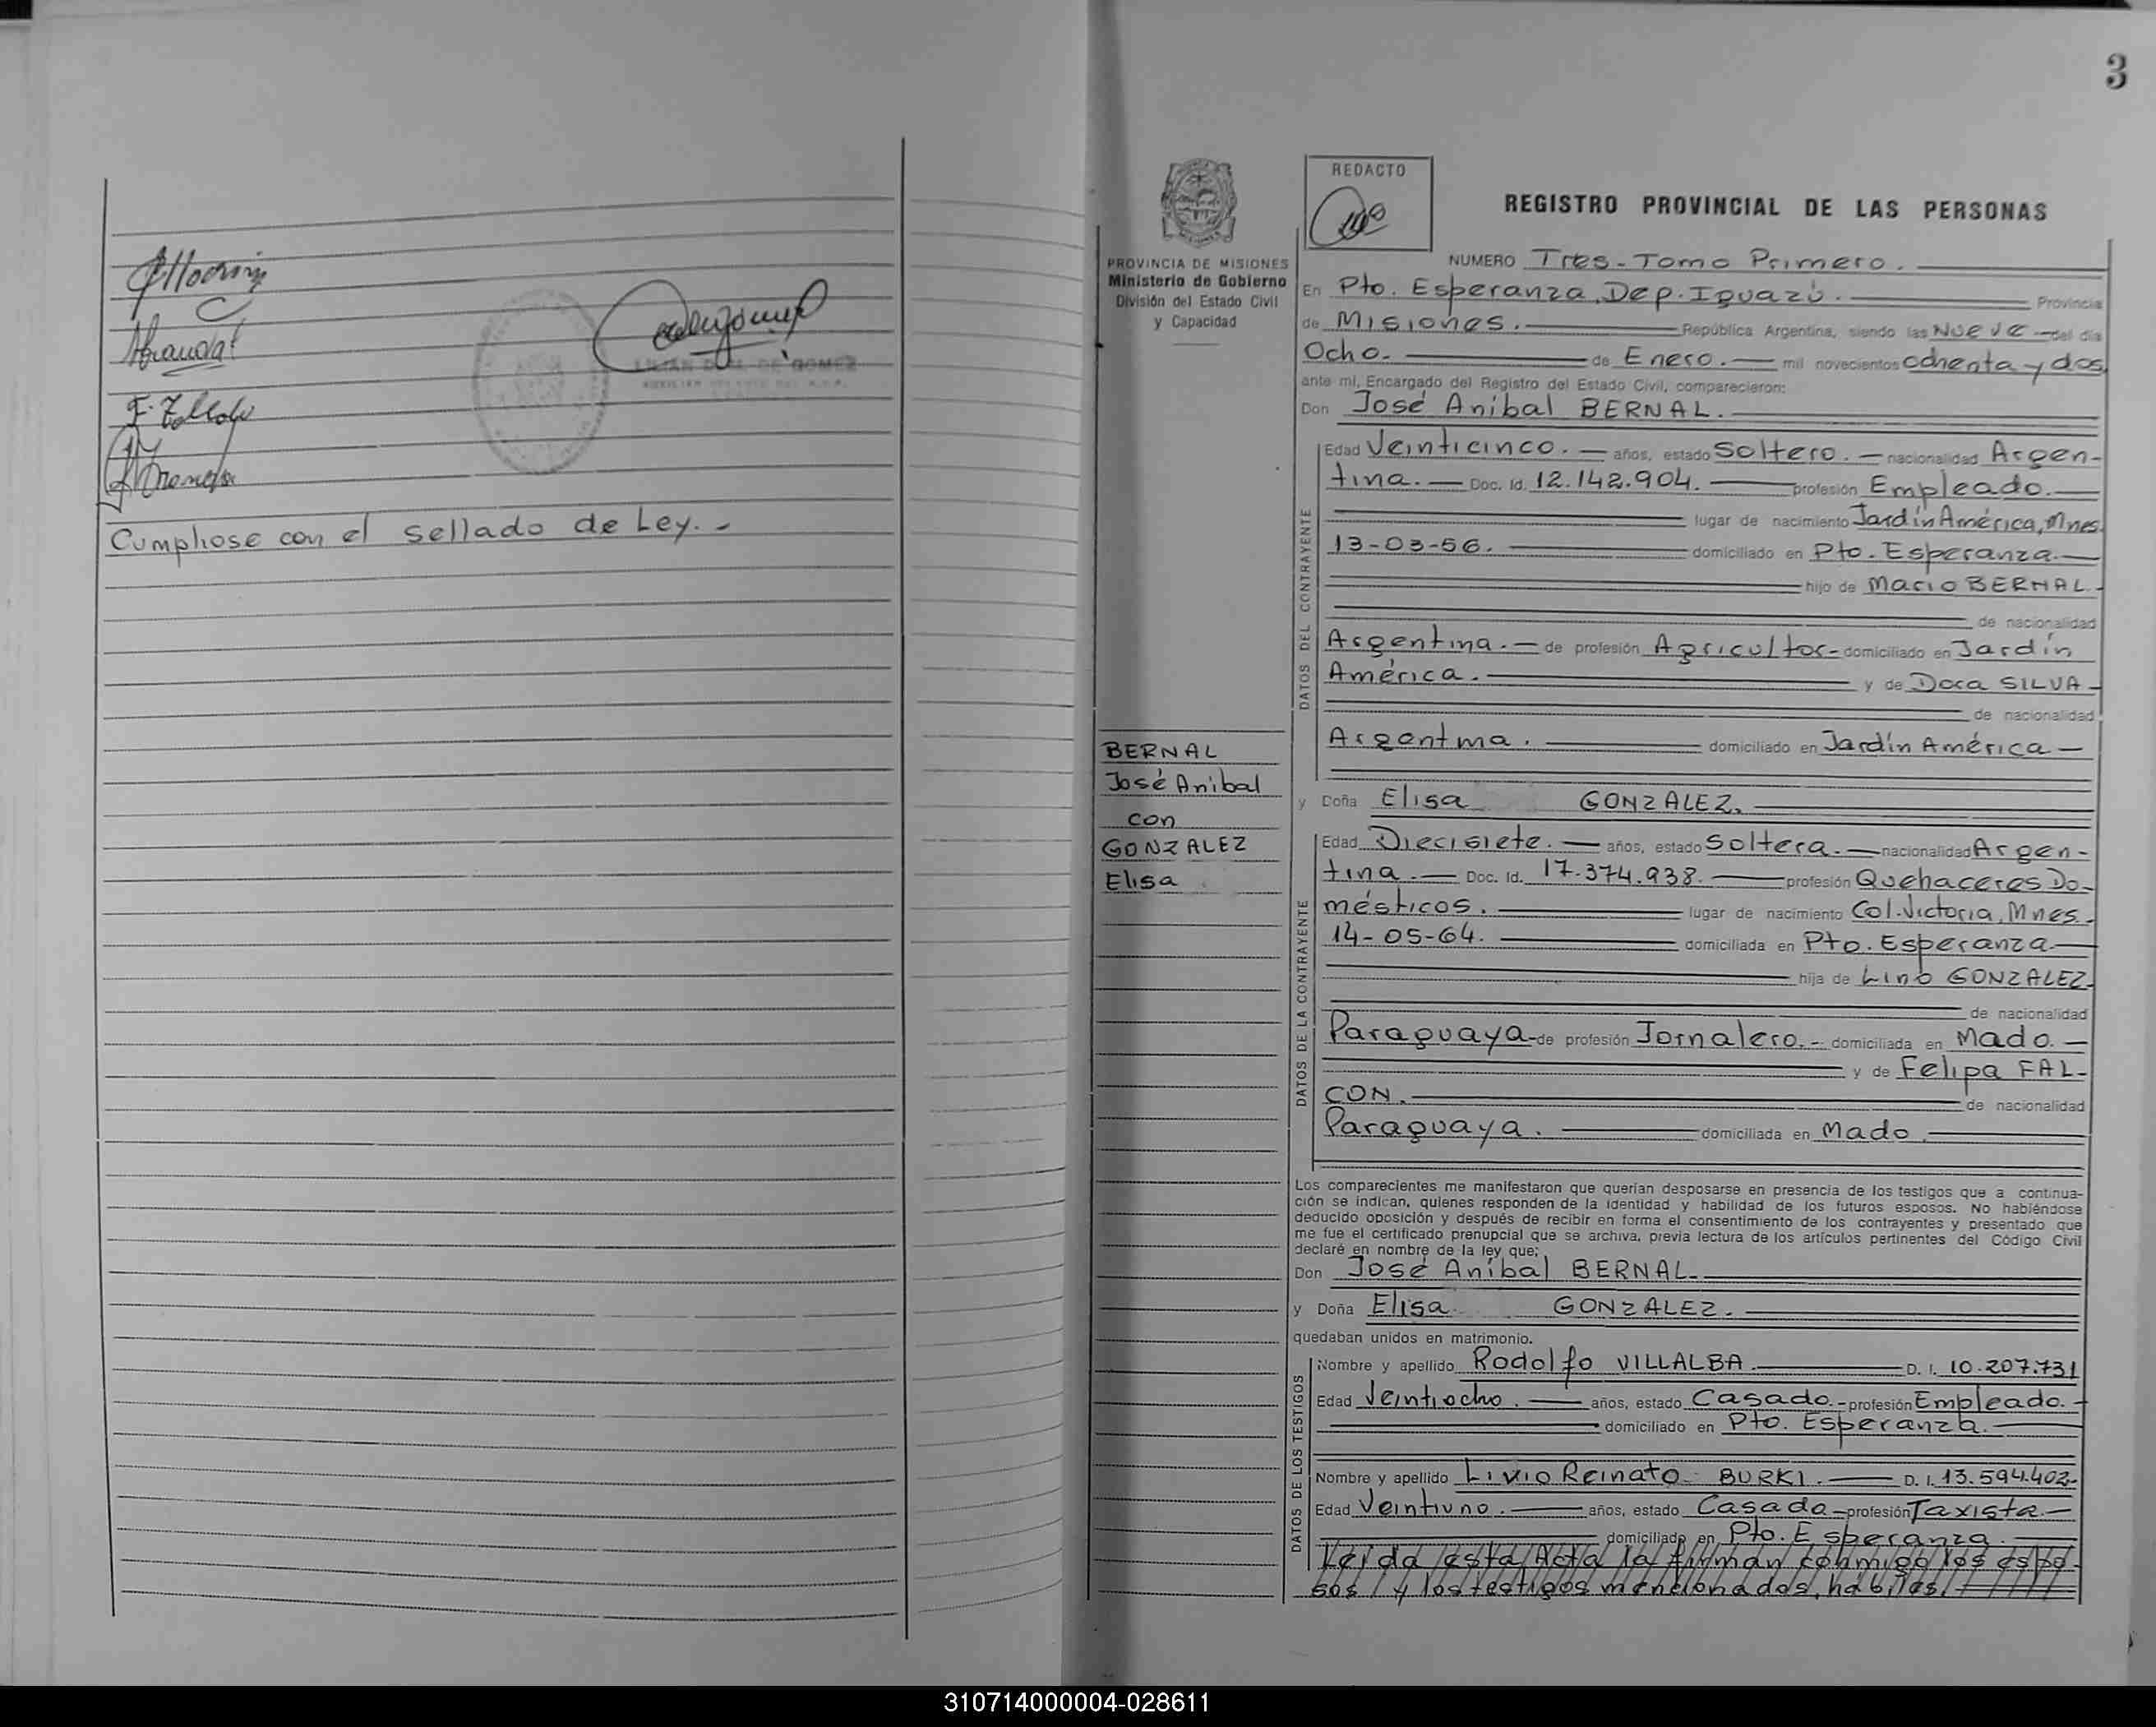 3
Cumpliose con el sellado de Ley.-
REDACTO
REGISTRO PROVINCIAL DE LAS PERSONAS
PROVINCIA DE MISIONES
Ministerio de Gobierno
División del Estado Civil
y Capacidad
BERNAL
José Anibal
con
GONZALEZ
Elisa
NUMERO Tres-Tomo Primero.
En Pto. Esperanza, Dep. Iguazú. Provincia
de Misiones. República Argentina, siendo las Nueve del día
Ocho. de Enero. mil novecientos ochenta y dos
ante mí, Encargado del Registro del Estado Civil, comparecieron:
Don José Anibal BERNAL.
DATOS DEL CONTRAYENTE
Edad Veinticinco. años, estado Soltero. nacionalidad Argen-
tina. Doc. Id. 12.142.904. profesión Empleado.
lugar de nacimiento Jardín América, Mnes.
13-03-56. domiciliado en Pto. Esperanza.
hijo de Mario BERNAL.
de nacionalidad
Argentina. de profesión Agricultor- domiciliado en Jardín
América. y de Dora SILVA
de nacionalidad
Argentina. domiciliado en Jardín América
y Doña Elisa GONZALEZ.
DATOS DE LA CONTRAYENTE
Edad Diecisiete. años, estado Soltera. nacionalidad Argen-
tina. Doc. Id. 17.374.938. profesión Quehaceres Do-
mésticos. lugar de nacimiento Col. Victoria, Mnes.
14-05-64. domiciliada en Pto. Esperanza
hija de Lino GONZALEZ
de nacionalidad
Paraguaya de profesión Jornalero. domiciliada en Mado.
y de Felipa FAL-
CON. de nacionalidad
Paraguaya. domiciliada en Mado
Los comparecientes me manifestaron que querían desposarse en presencia de los testigos que a continua-
ción se indican, quienes responden de la identidad y habilidad de los futuros esposos. No habiéndose
deducido oposición y después de recibir en forma el consentimiento de los contrayentes y presentado que
me fue el certificado prenupcial que se archiva, previa lectura de los artículos pertinentes del Código Civil
declaré en nombre de la ley que;
Don José Anibal BERNAL.
y Doña Elisa GONZALEZ.
quedaban unidos en matrimonio.
DATOS DE LOS TESTIGOS
Nombre y apellido Rodolfo VILLALBA. D. I. 10.207.731
Edad Veintiocho. años, estado Casado.- profesión Empleado.
domiciliado en Pto. Esperanza.
Nombre y apellido Livio Reinato BURKI. D. I. 13.594.402
Edad Veintiuno. años, estado Casado profesión Taxista.
domiciliado en Pto. Esperanza.
Leída esta Acta la firman conmigo los espo-
sos y los testigos mencionados, hábiles.
310714000004-028611